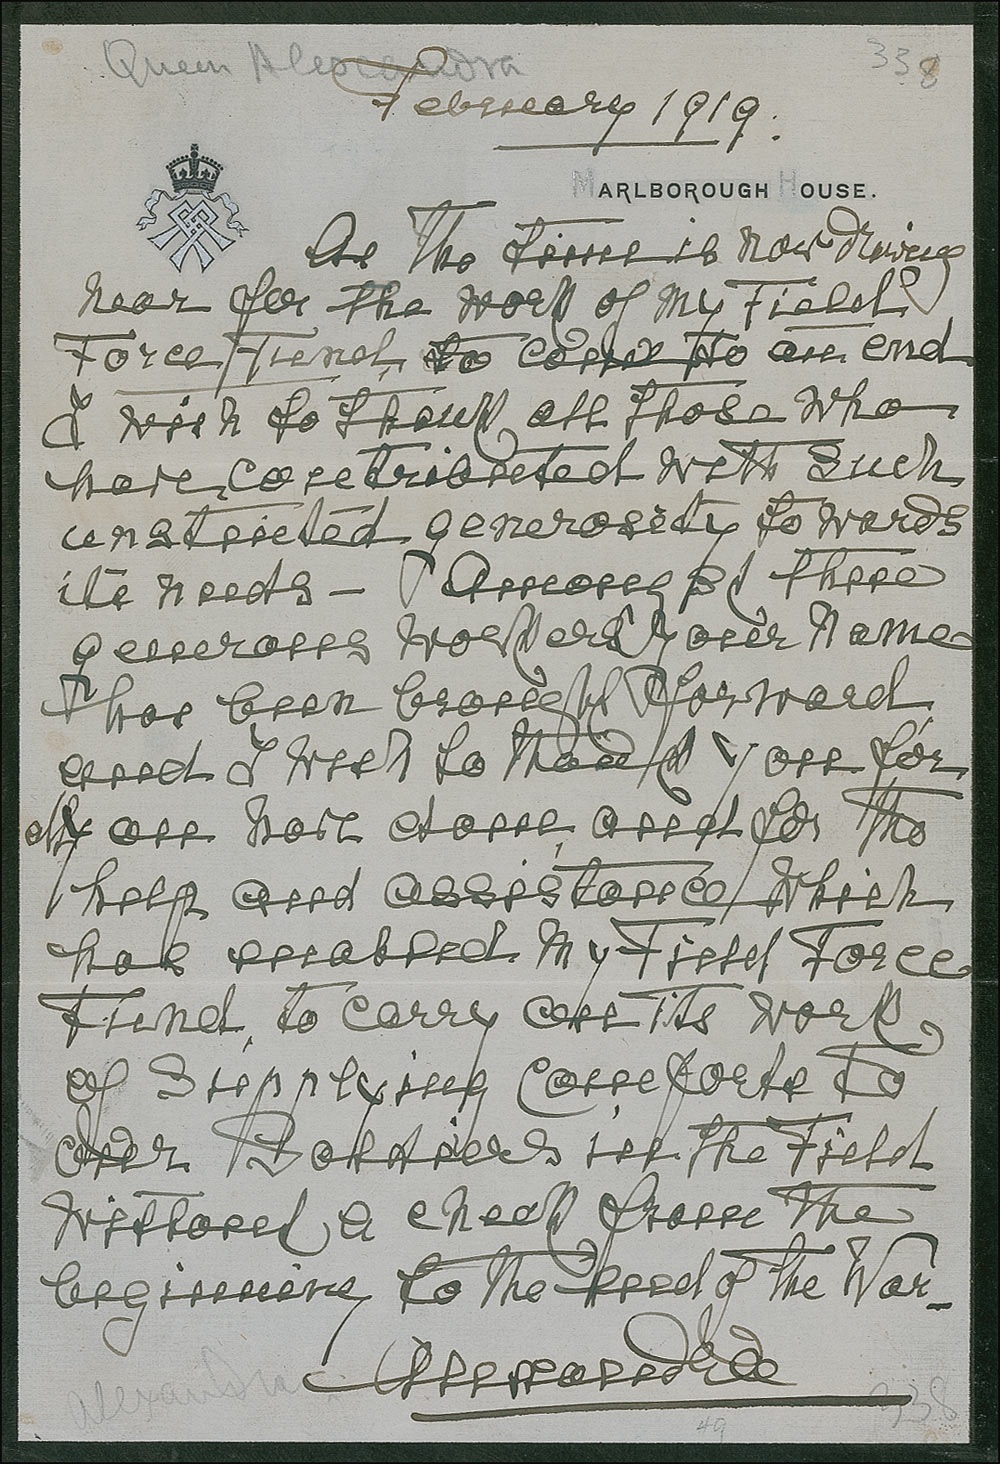 Queen Alexandra
338
February 1919.
MARLBOROUGH HOUSE.
As the time is now drawing
near for the work of my Field
Force Fund, to come to an end
I wish to thank all those who
have contributed with such
unstinted generosity towards
its needs – Amongst these
generous workers your name
has been brought forward
and I wish to thank you for
all you have done, and for the
help and assistance which
has enabled my Field Force
Fund, to carry on its work
of supplying comforts to
our Soldiers in the Field
without a check from the
beginning to the end of the War –
Alexandra
Alexandra
338
49